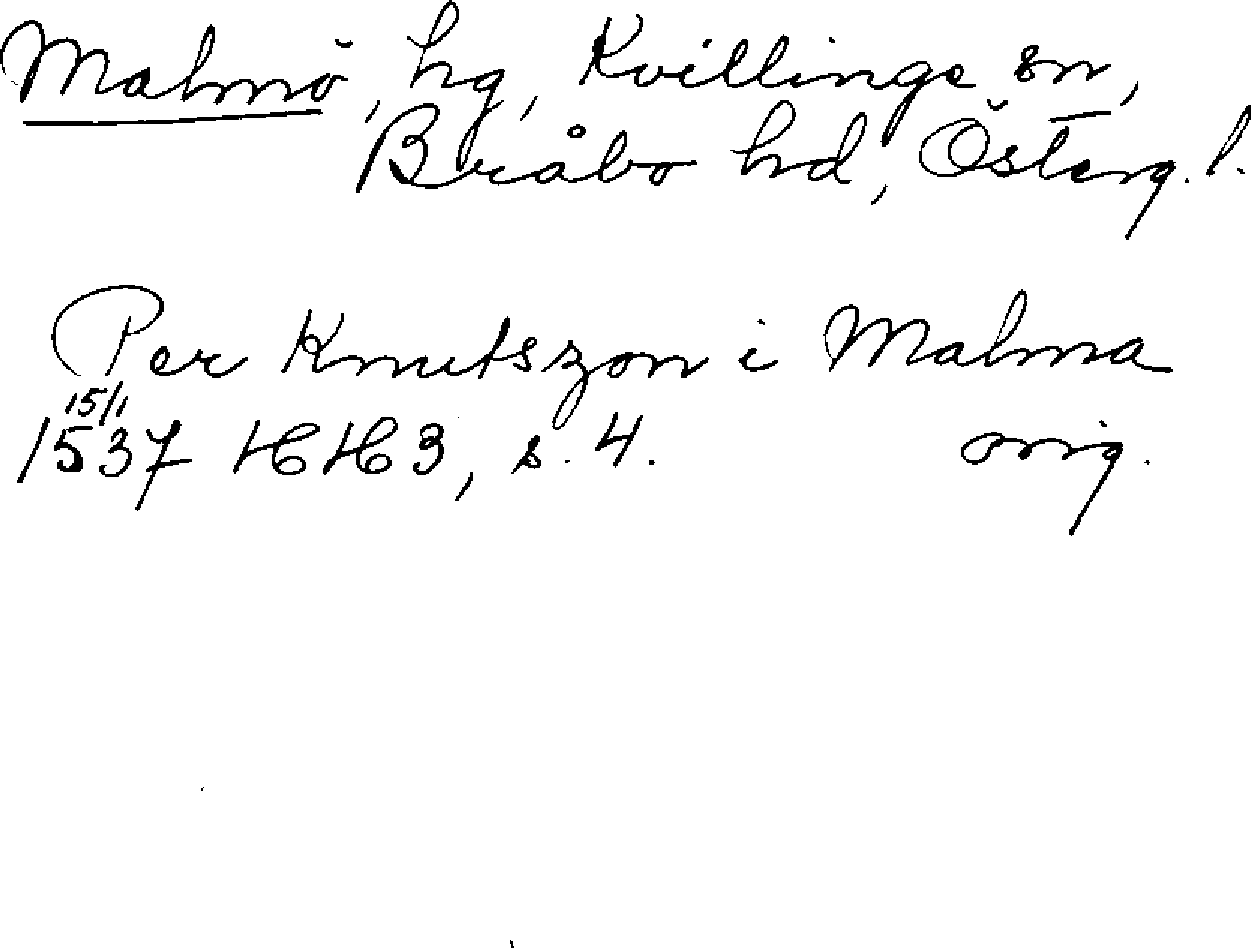 Malmö, hg, Kvillinge sn,
Bråbo hd, Österg. l.
Per Knutszon i Malma
15/1
1537 HH 3, s. 4. orig.